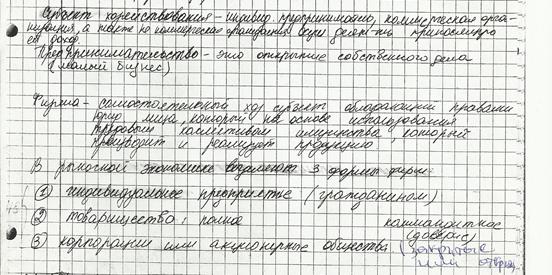 Субъект хозяйствования - индивид. предприниматель, коммерческая орга-
низация, а также не коммерческая организация ведущ. деят-ть приносящую
ей доход.
Предпринимательство - это открытие собственного дела
(малый бизнес)
Фирма - самостоятельный хоз. субъект обладающий правами
юрид лица, который на основе использования
трудовым коллективом имущества, который
производит и реализует продукцию.
В рыночной экономике выделяют 3 формы фирм:
① индивидуальное предприятие (гражданином)
② товарищества: полна коммандитное
(доверие)
③ корпорации или акционерные общества (закрытые
или открыт